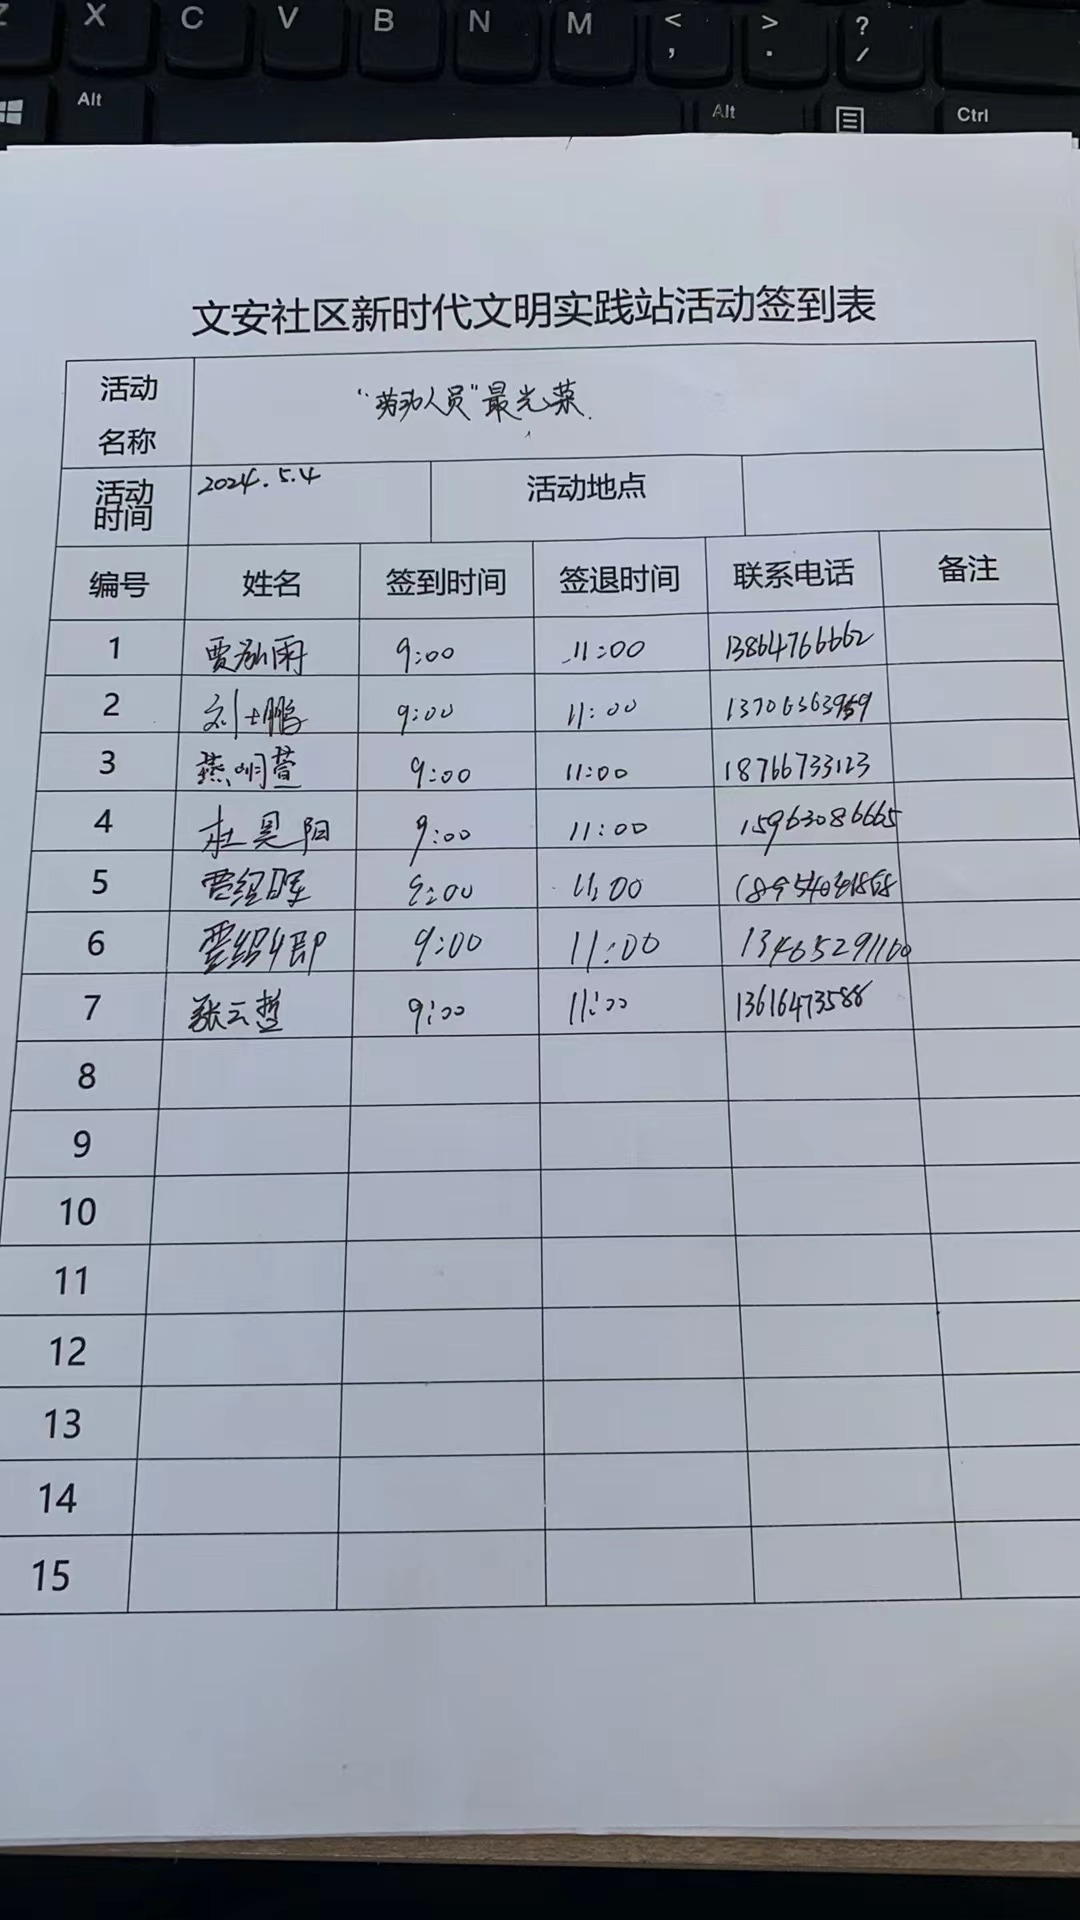 Z X C V B N M < , > . ? /
Alt Alt Ctrl
文安社区新时代文明实践站活动签到表
活动名称 “劳动人员”最光荣.
活动时间 2024.5.4 活动地点
编号 姓名 签到时间 签退时间 联系电话 备注
1 贾泓雨 9:00 11:00 13864766662
2 刘士鹏 9:00 11:00
3 燕明萱 9:00 11:00 18766733123
4 杜昊阳 9:00 11:00 15963086665
5 9:00 11:00
6 9:00 11:00 13465291100
7 张云哲 9:00 11:00 13616473588
8
9
10
11
12
13
14
15